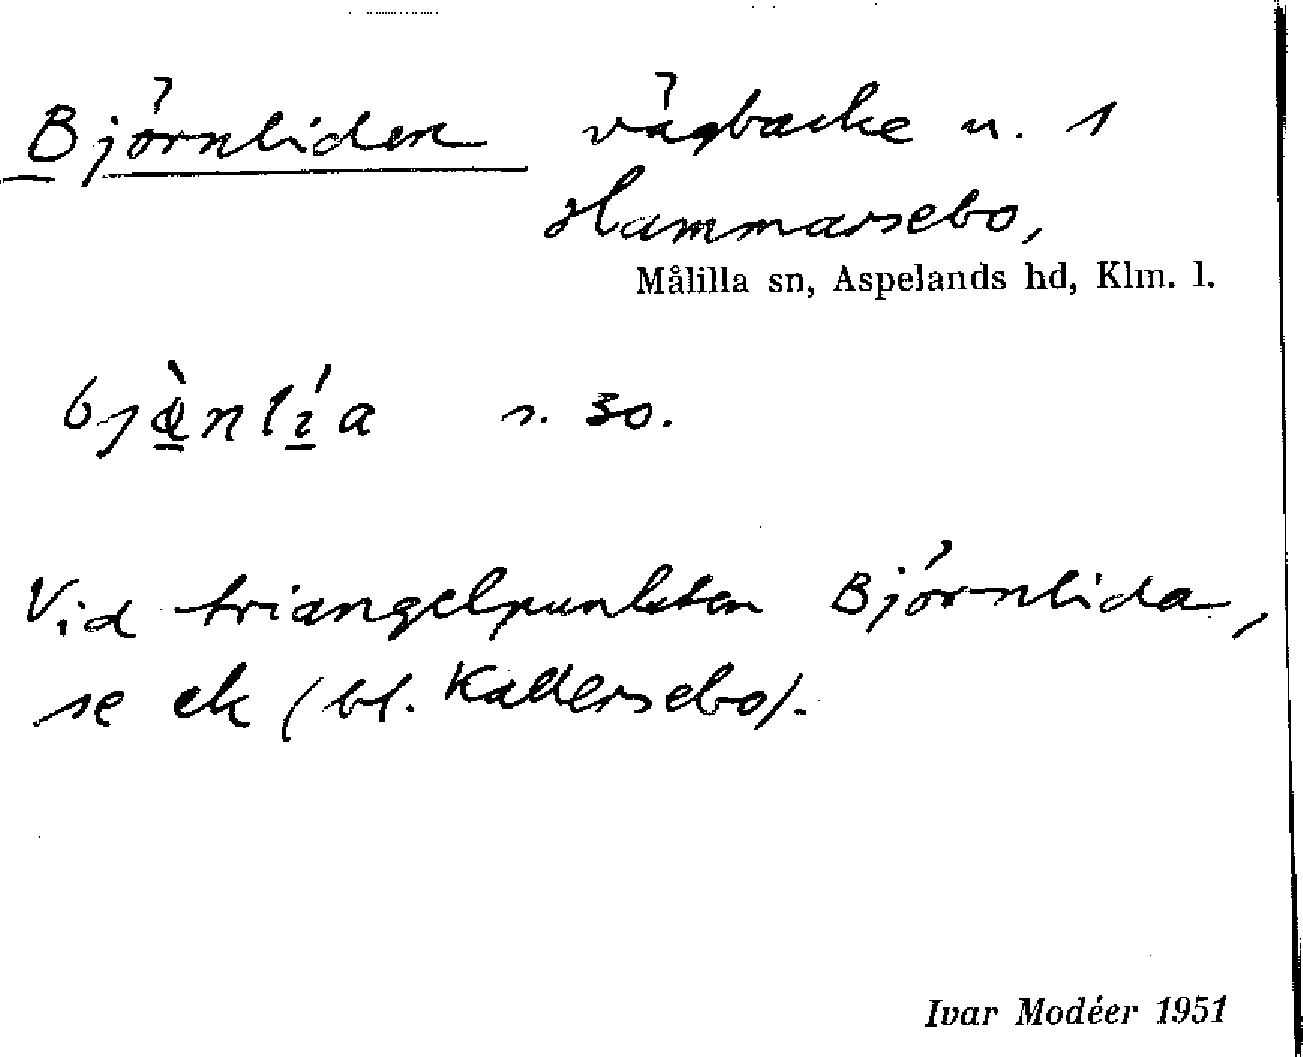 Björnliden vägbacke n. 1
Hammarsebo,
Målilla sn, Aspelands hd, Klm. l.
s. 30.
Vid triangelpunkten Björnlida,
se ek (bl. Kallersebo).
Ivar Modéer 1951